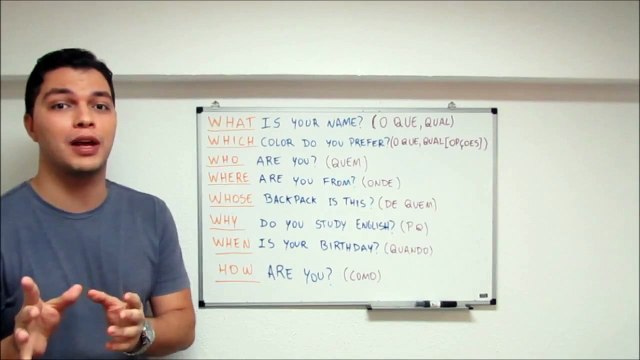 WHAT IS YOUR NAME? (O QUE, QUAL)
WHICH COLOR DO YOU PREFER? (O QUE, QUAL [OPÇOES])
WHO ARE YOU? (QUEM)
WHERE ARE YOU FROM? (ONDE)
WHOSE BACKPACK IS THIS? (DE QUEM)
WHY DO YOU STUDY ENGLISH? (PQ)
WHEN IS YOUR BIRTHDAY? (QUANDO)
HOW ARE YOU? (COMO)